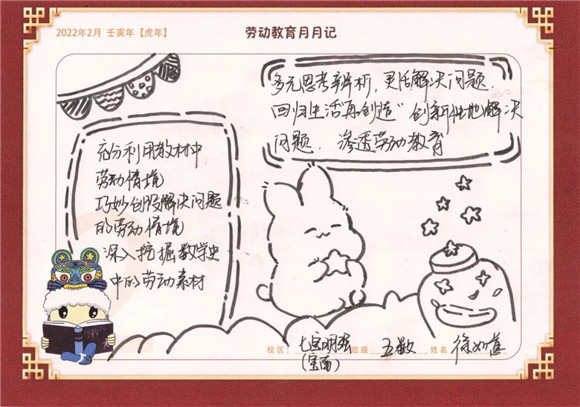 2022年2月 壬寅年【虎年】
劳动教育月月记
多元思考辨析，灵活解决问题.
回归生活再创造"创新性地解决
问题. 渗透劳动教育
充分利用教材中
劳动情境
巧妙创设解决问题
的劳动情境
深入挖掘数学史
中的劳动素材
校区： 七宝明强 班级 五数 姓名 徐
(宝南)